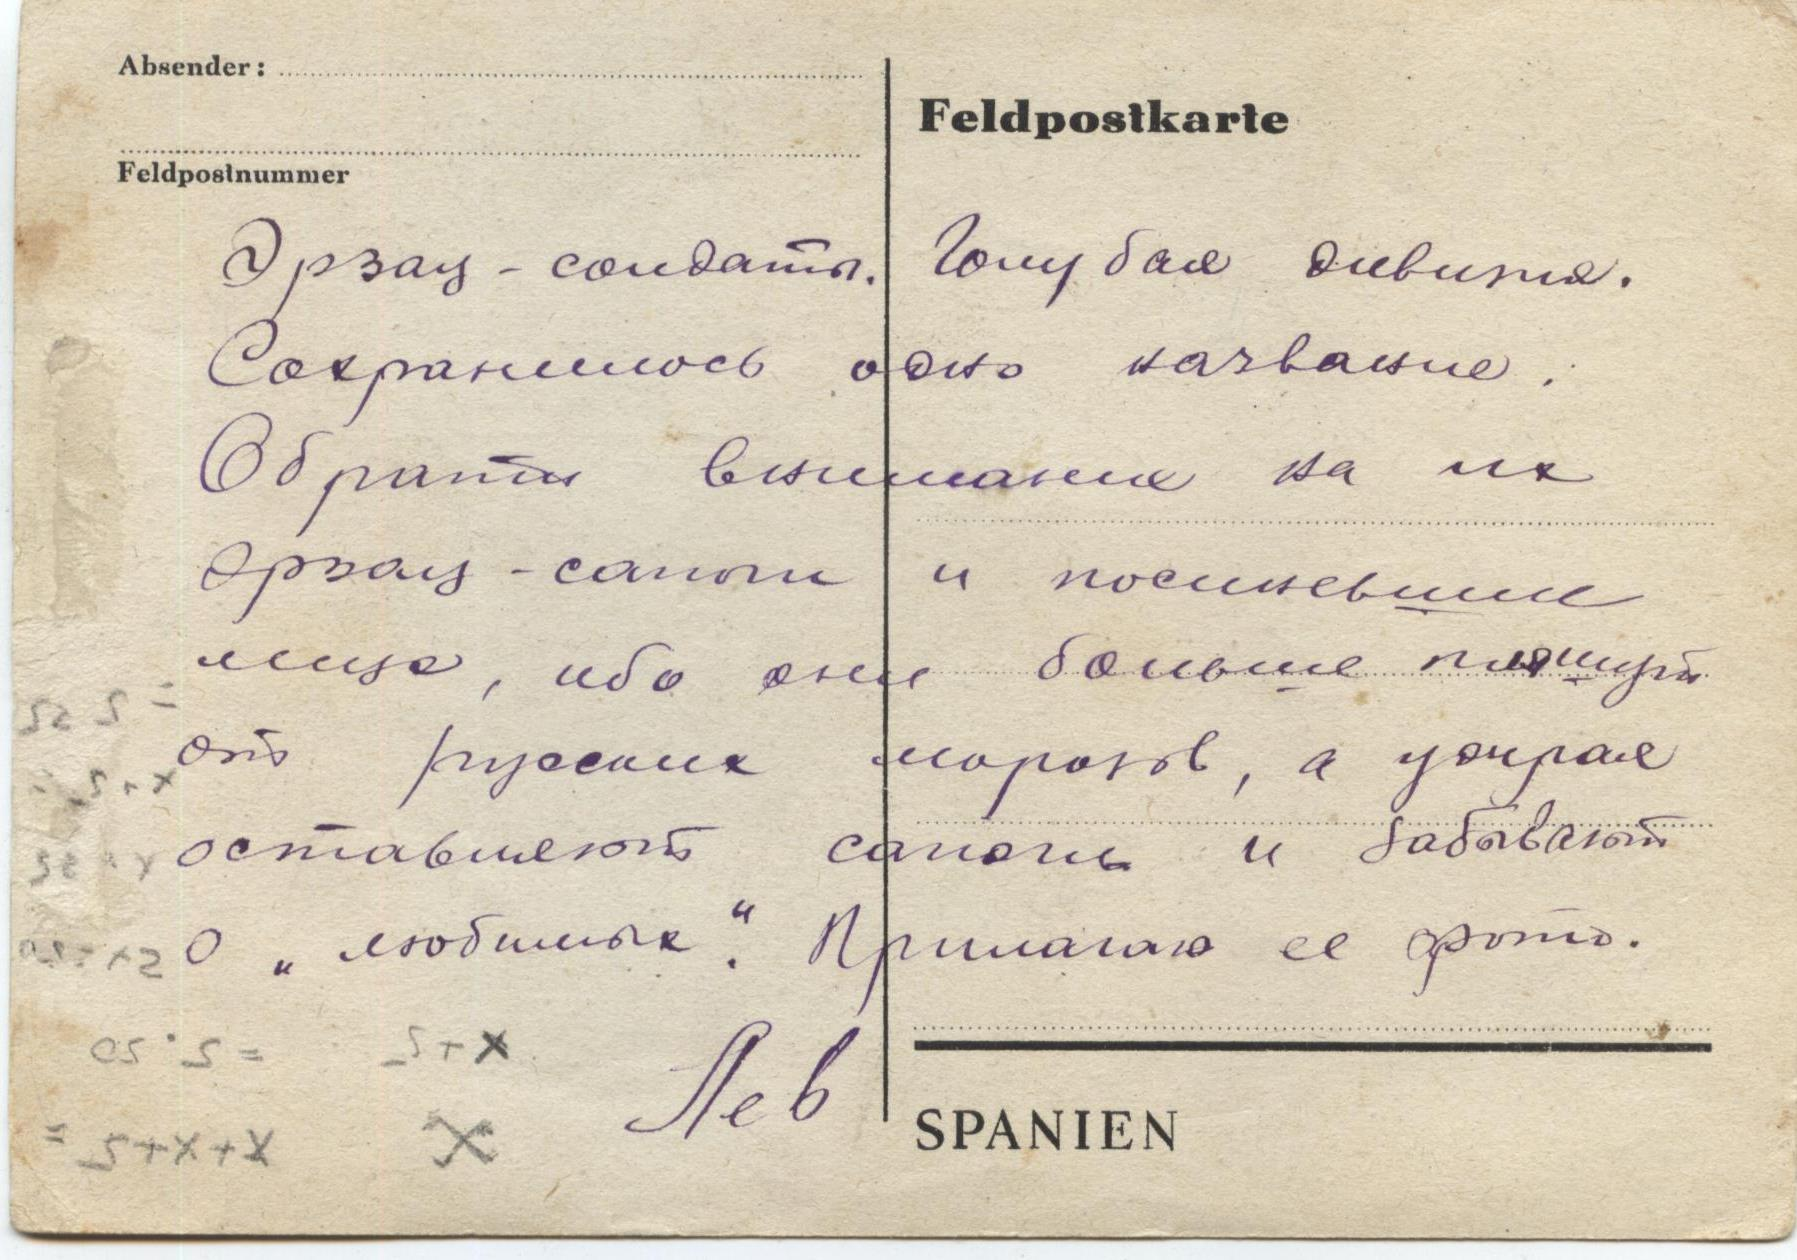 Absender:
Feldpostkarte
Feldpostnummer
Эрзац-солдаты. Голубая дивизия.
Сохранилось одно название.
Обрати внимание на их
эрзац-сапоги и посиневшие
лица, ибо они больше пляшут
от русских морозов, а удирая
оставляют сапоги и забывают
о „любимых“. Прилагаю ее фото.
Лев
SPANIEN
x+5 = 5.50
x+x+5 =
x